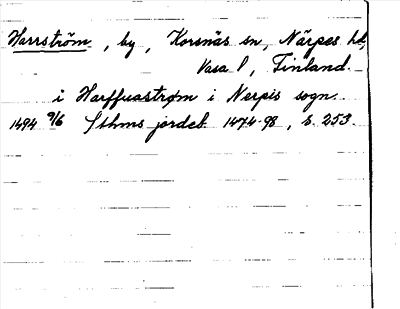 Harrström, by, Korsnäs sn, Närpes hd,
Vasa l, Finland.
i Harffuastrøm i Nerpis sogn.
1494 9/6 Sthms jordeb. 1474-98, s. 253.